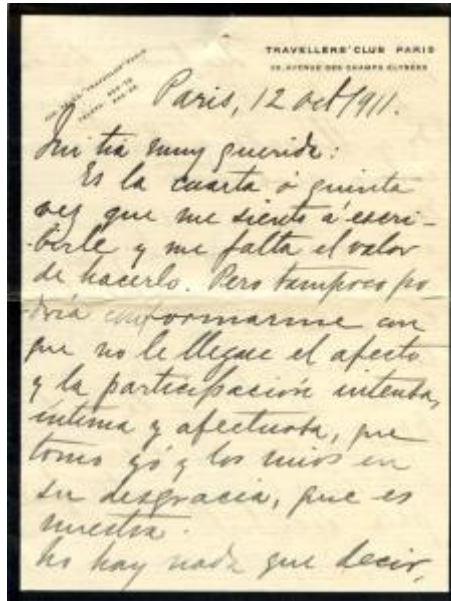 TRAVELLERS' CLUB PARIS
25, AVENUE DES CHAMPS ELYSÉES
Paris, 12 oct 1911.
Mi tia muy querida:
Es la cuarta ó quinta
vez que me siento á escri-
birle y me falta el valor
de hacerlo. Pero tampoco po-
dria conformarme con
que no le llegue el afecto
y la participación intensa,
intima y afectuosa, que
tomo yó y los mios en
su desgracia, que es
nuestra.
No hay nada que decir,